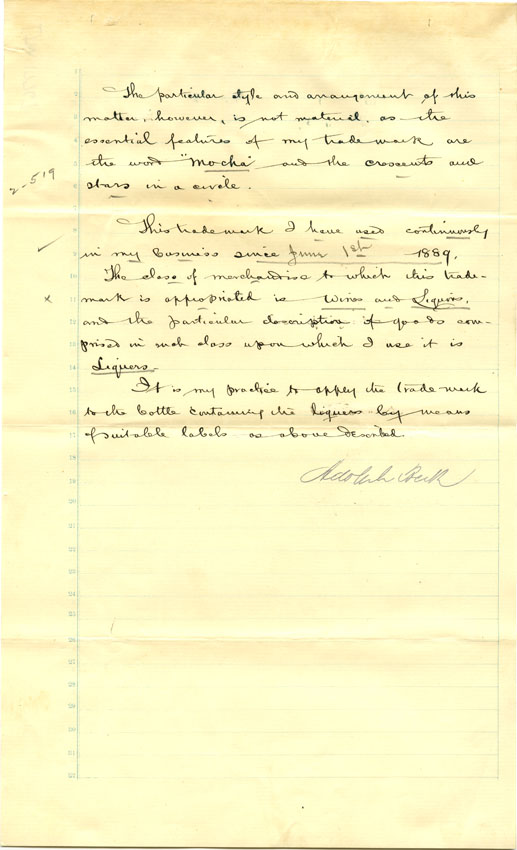 The particular style and arrangement of this
matter, however, is not material, as the
essential features of my trademark are
the word "Mocha" and the crescents and
stars in a circle.
2-519
This trademark I have used continuously
in my business since June 1st 1889.
The class of merchandise to which this trade-
mark is appropriated is Wines and Liquors,
x
and the particular description of goods com-
prised in such class upon which I use it is
Liquers.
It is my practice to apply the trade mark
to the bottle containing the liquers by means
of suitable labels as above described
Adolph